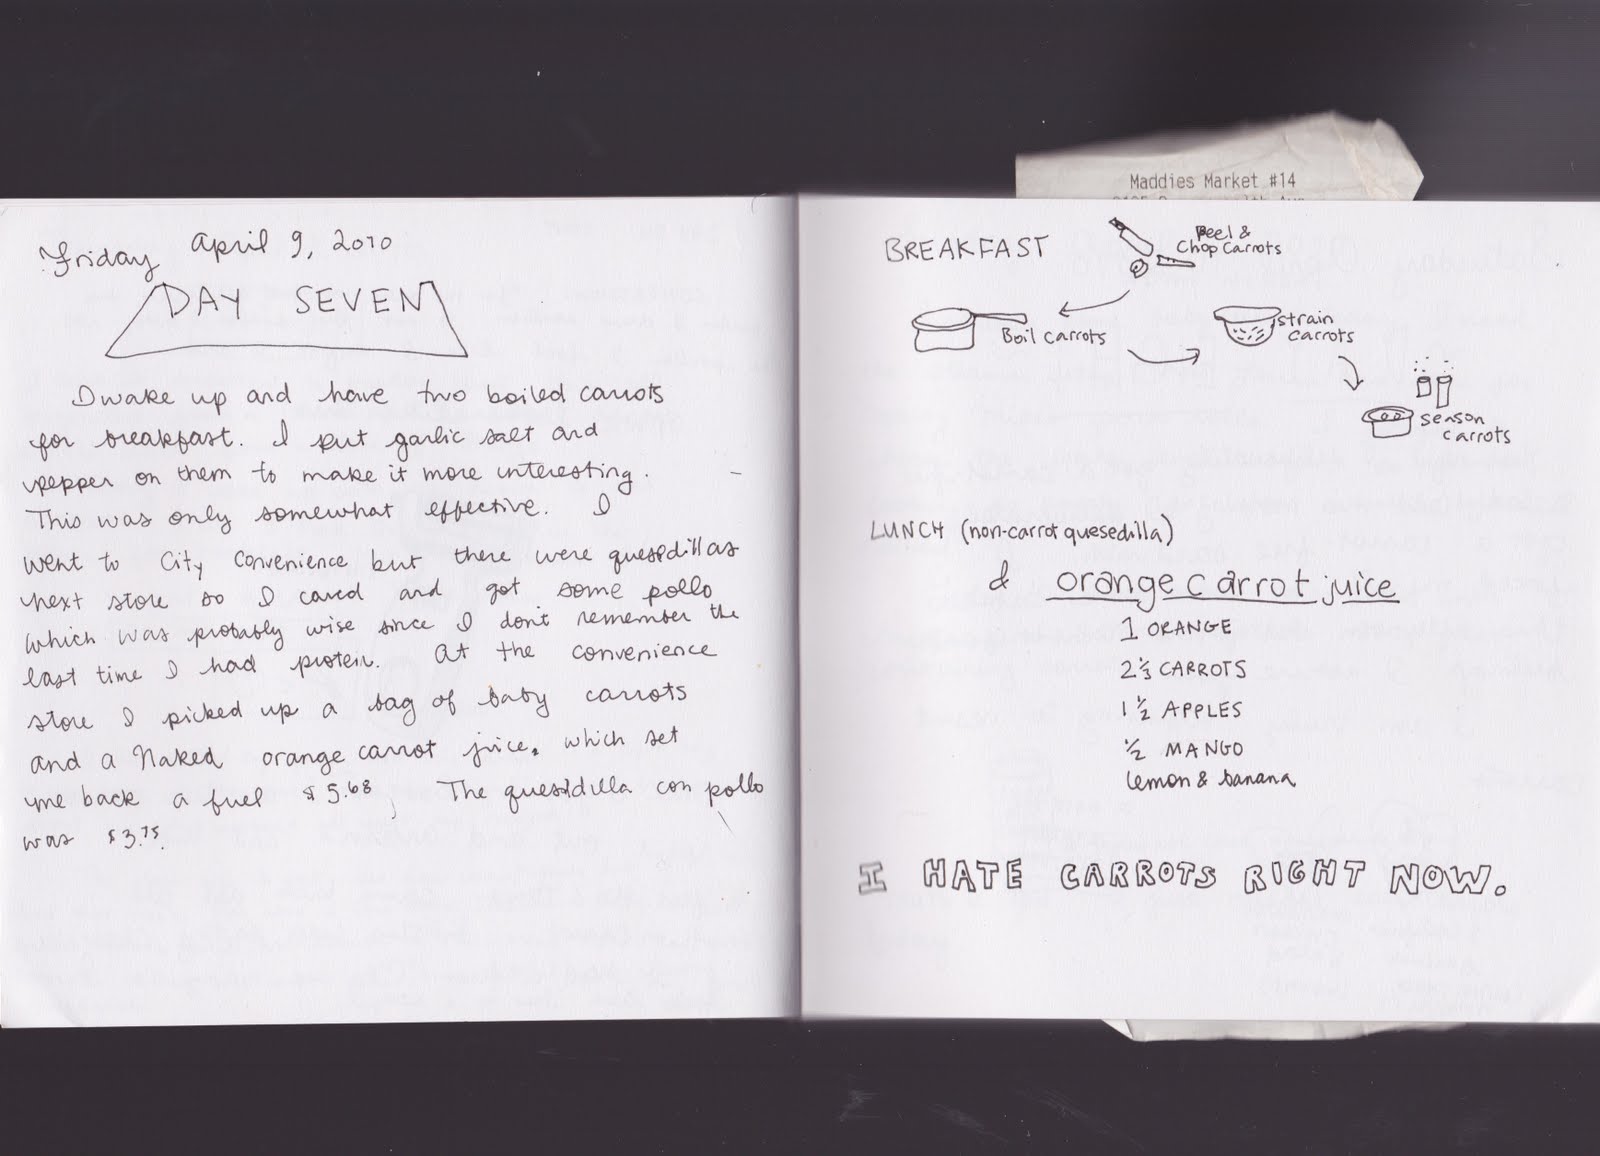 Friday April 9, 2010
DAY SEVEN
I wake up and have two boiled carrots
for breakfast. I put garlic salt and
pepper on them to make it more interesting.
This was only somewhat effective. I
went to City Convenience but there were quesedillas
next store so I caved and got some pollo
which was probably wise since I don't remember the
last time I had protein. At the convenience
store I picked up a bag of baby carrots
and a Naked orange carrot juice, which set
me back a fuel $5.68, The quesidilla con pollo
was $3.75.
Maddies Market #14
BREAKFAST
Peel &
Chop Carrots
Boil carrots
strain
carrots
season
carrots
LUNCH (non-carrot quesedilla)
& orange carrot juice
1 ORANGE
2 1/3 CARROTS
1 1/2 APPLES
1/2 MANGO
lemon & banana
I HATE CARROTS RIGHT NOW.